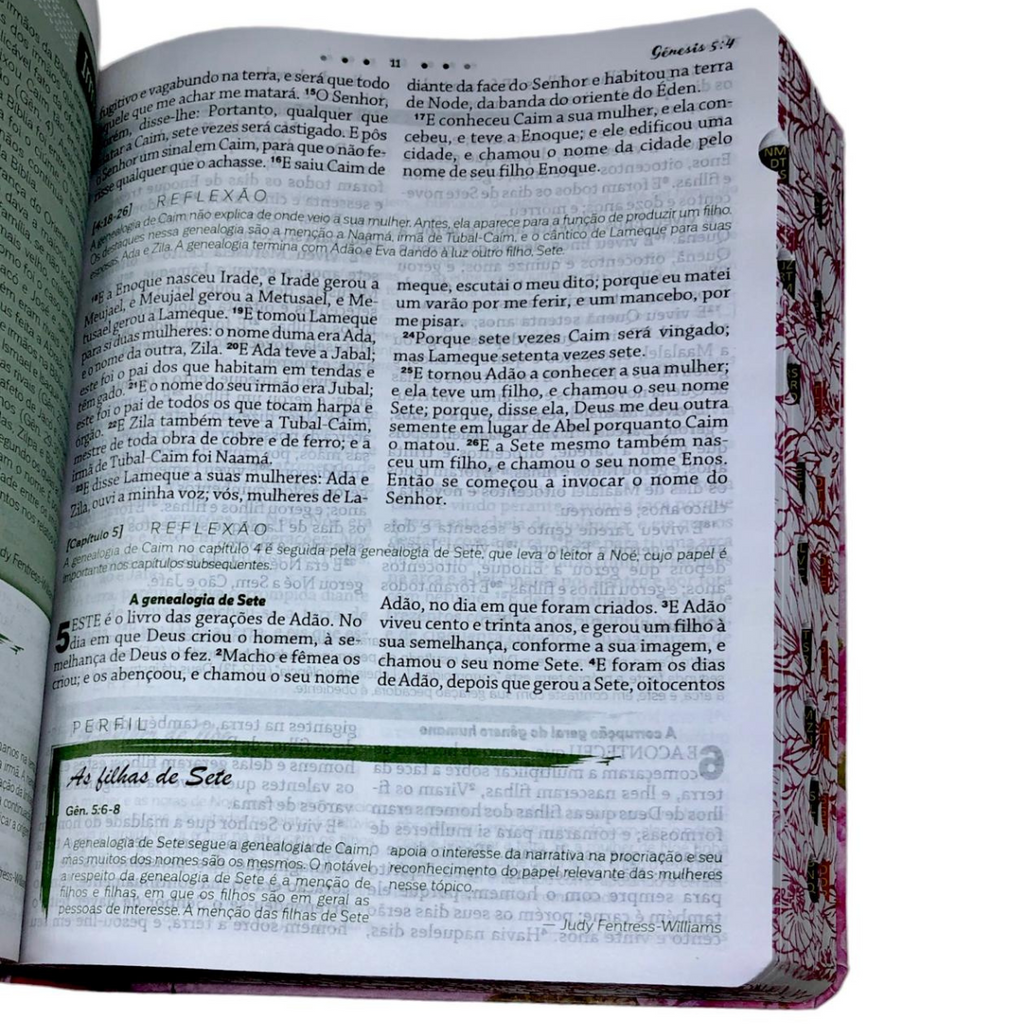 11
Gênesis 5:4
fugitivo e vagabundo na terra, e será que todo
aquele que me achar me matará. ¹⁵O Senhor,
porém, disse-lhe: Portanto, qualquer que
matar a Caim, sete vezes será castigado. E pôs
o Senhor um sinal em Caim, para que não fe-
risse qualquer que o achasse. ¹⁶E saiu Caim de
diante da face do Senhor e habitou na terra
de Node, da banda do oriente do Éden.
¹⁷E conheceu Caim a sua mulher, e ela con-
cebeu, e teve a Enoque; e ele edificou uma
cidade, e chamou o nome da cidade pelo
nome de seu filho Enoque.
[4:18-26] REFLEXÃO
A genealogia de Caim não explica de onde veio a sua mulher. Antes, ela aparece para a função de produzir um filho.
Os destaques nessa genealogia são a menção a Naamá, irmã de Tubal-Caim, e o cântico de Lameque para suas
esposas, Ada e Zila. A genealogia termina com Adão e Eva dando à luz outro filho, Sete.
¹⁸E a Enoque nasceu Irade, e Irade gerou a
Meujael, e Meujael gerou a Metusael, e Me-
tusael gerou a Lameque. ¹⁹E tomou Lameque
para si duas mulheres: o nome duma era Ada,
e o nome da outra, Zila. ²⁰E Ada teve a Jabal;
este foi o pai dos que habitam em tendas e
têm gado. ²¹E o nome do seu irmão era Jubal;
este foi o pai de todos os que tocam harpa e
órgão. ²²E Zila também teve a Tubal-Caim,
mestre de toda obra de cobre e de ferro; e a
irmã de Tubal-Caim foi Naamá.
²³E disse Lameque a suas mulheres: Ada e
Zila, ouvi a minha voz; vós, mulheres de La-
meque, escutai o meu dito; porque eu matei
um varão por me ferir, e um mancebo, por
me pisar.
²⁴Porque sete vezes Caim será vingado;
mas Lameque setenta vezes sete.
²⁵E tornou Adão a conhecer a sua mulher;
e ela teve um filho, e chamou o seu nome
Sete; porque, disse ela, Deus me deu outra
semente em lugar de Abel porquanto Caim
o matou. ²⁶E a Sete mesmo também nas-
ceu um filho, e chamou o seu nome Enos.
Então se começou a invocar o nome do
Senhor.
[Capítulo 5] REFLEXÃO
A genealogia de Caim no capítulo 4 é seguida pela genealogia de Sete, que leva o leitor a Noé, cujo papel é
importante nos capítulos subsequentes.
A genealogia de Sete
5 ESTE é o livro das gerações de Adão. No
dia em que Deus criou o homem, à se-
melhança de Deus o fez. ²Macho e fêmea os
criou; e os abençoou, e chamou o seu nome
Adão, no dia em que foram criados. ³E Adão
viveu cento e trinta anos, e gerou um filho à
sua semelhança, conforme a sua imagem, e
chamou o seu nome Sete. ⁴E foram os dias
de Adão, depois que gerou a Sete, oitocentos
PERFIL
As filhas de Sete
Gên. 5:6-8
A genealogia de Sete segue a genealogia de Caim,
mas muitos dos nomes são os mesmos. O notável
a respeito da genealogia de Sete é a menção de
filhos e filhas, em que os filhos são em geral as
pessoas de interesse. A menção das filhas de Sete
apoia o interesse da narrativa na procriação e seu
reconhecimento do papel relevante das mulheres
nesse tópico.
— Judy Fentress-Williams
NM
DT